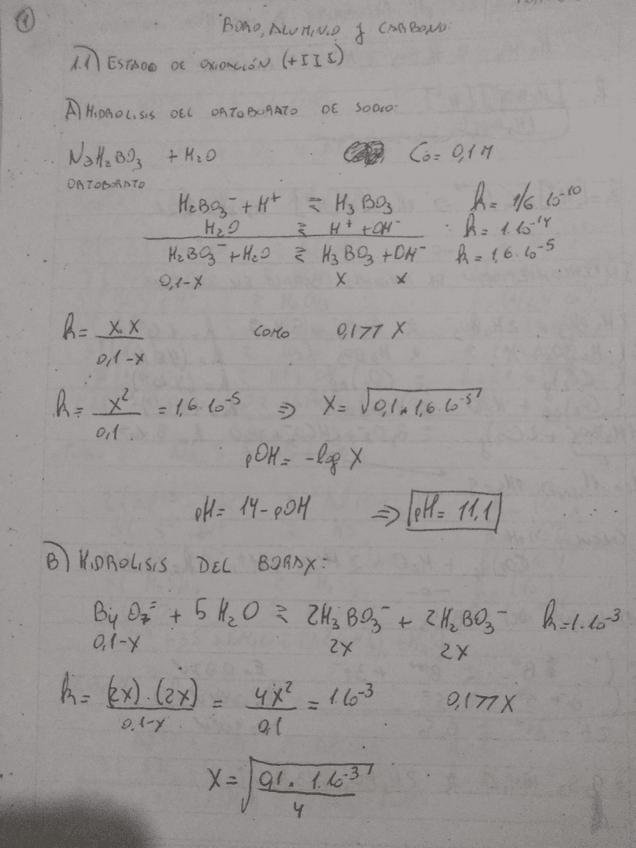 1
BORO, ALUMINIO y CARBONO:
1.1) ESTADO DE OXIDACIÓN (+III)
A) HIDROLISIS DEL ORTOBORATO DE SODIO:
NaH₂BO₃ + H₂O C₀ = 0,1 M
ORTOBORATO
H₂BO₃⁻ + H⁺ ⇌ H₃BO₃ k = 1/6.10⁻¹⁰
H₂O ⇌ H⁺ + OH⁻ k = 1.10⁻¹⁴
H₂BO₃⁻ + H₂O ⇌ H₃BO₃ + OH⁻ k = 1,6.10⁻⁵
0,1-X X X
k = X.X / 0,1-X COMO 0,1 >> X
k = X² / 0,1 = 1,6.10⁻⁵ ⇒ X = √0,1 . 1,6.10⁻⁵
pOH = -log X
pH = 14 - pOH ⇒ pH = 11,1
B) HIDROLISIS DEL BORAX:
B₄O₇⁼ + 5 H₂O ⇌ 2H₃BO₃⁻ + 2H₂BO₃⁻ k = 1.10⁻³
0,1-X 2X 2X
k = (2X).(2X) / 0,1-X = 4X² / 0,1 = 1.10⁻³ 0,1 >> X
X = √0,1 . 1.10⁻³ / 4